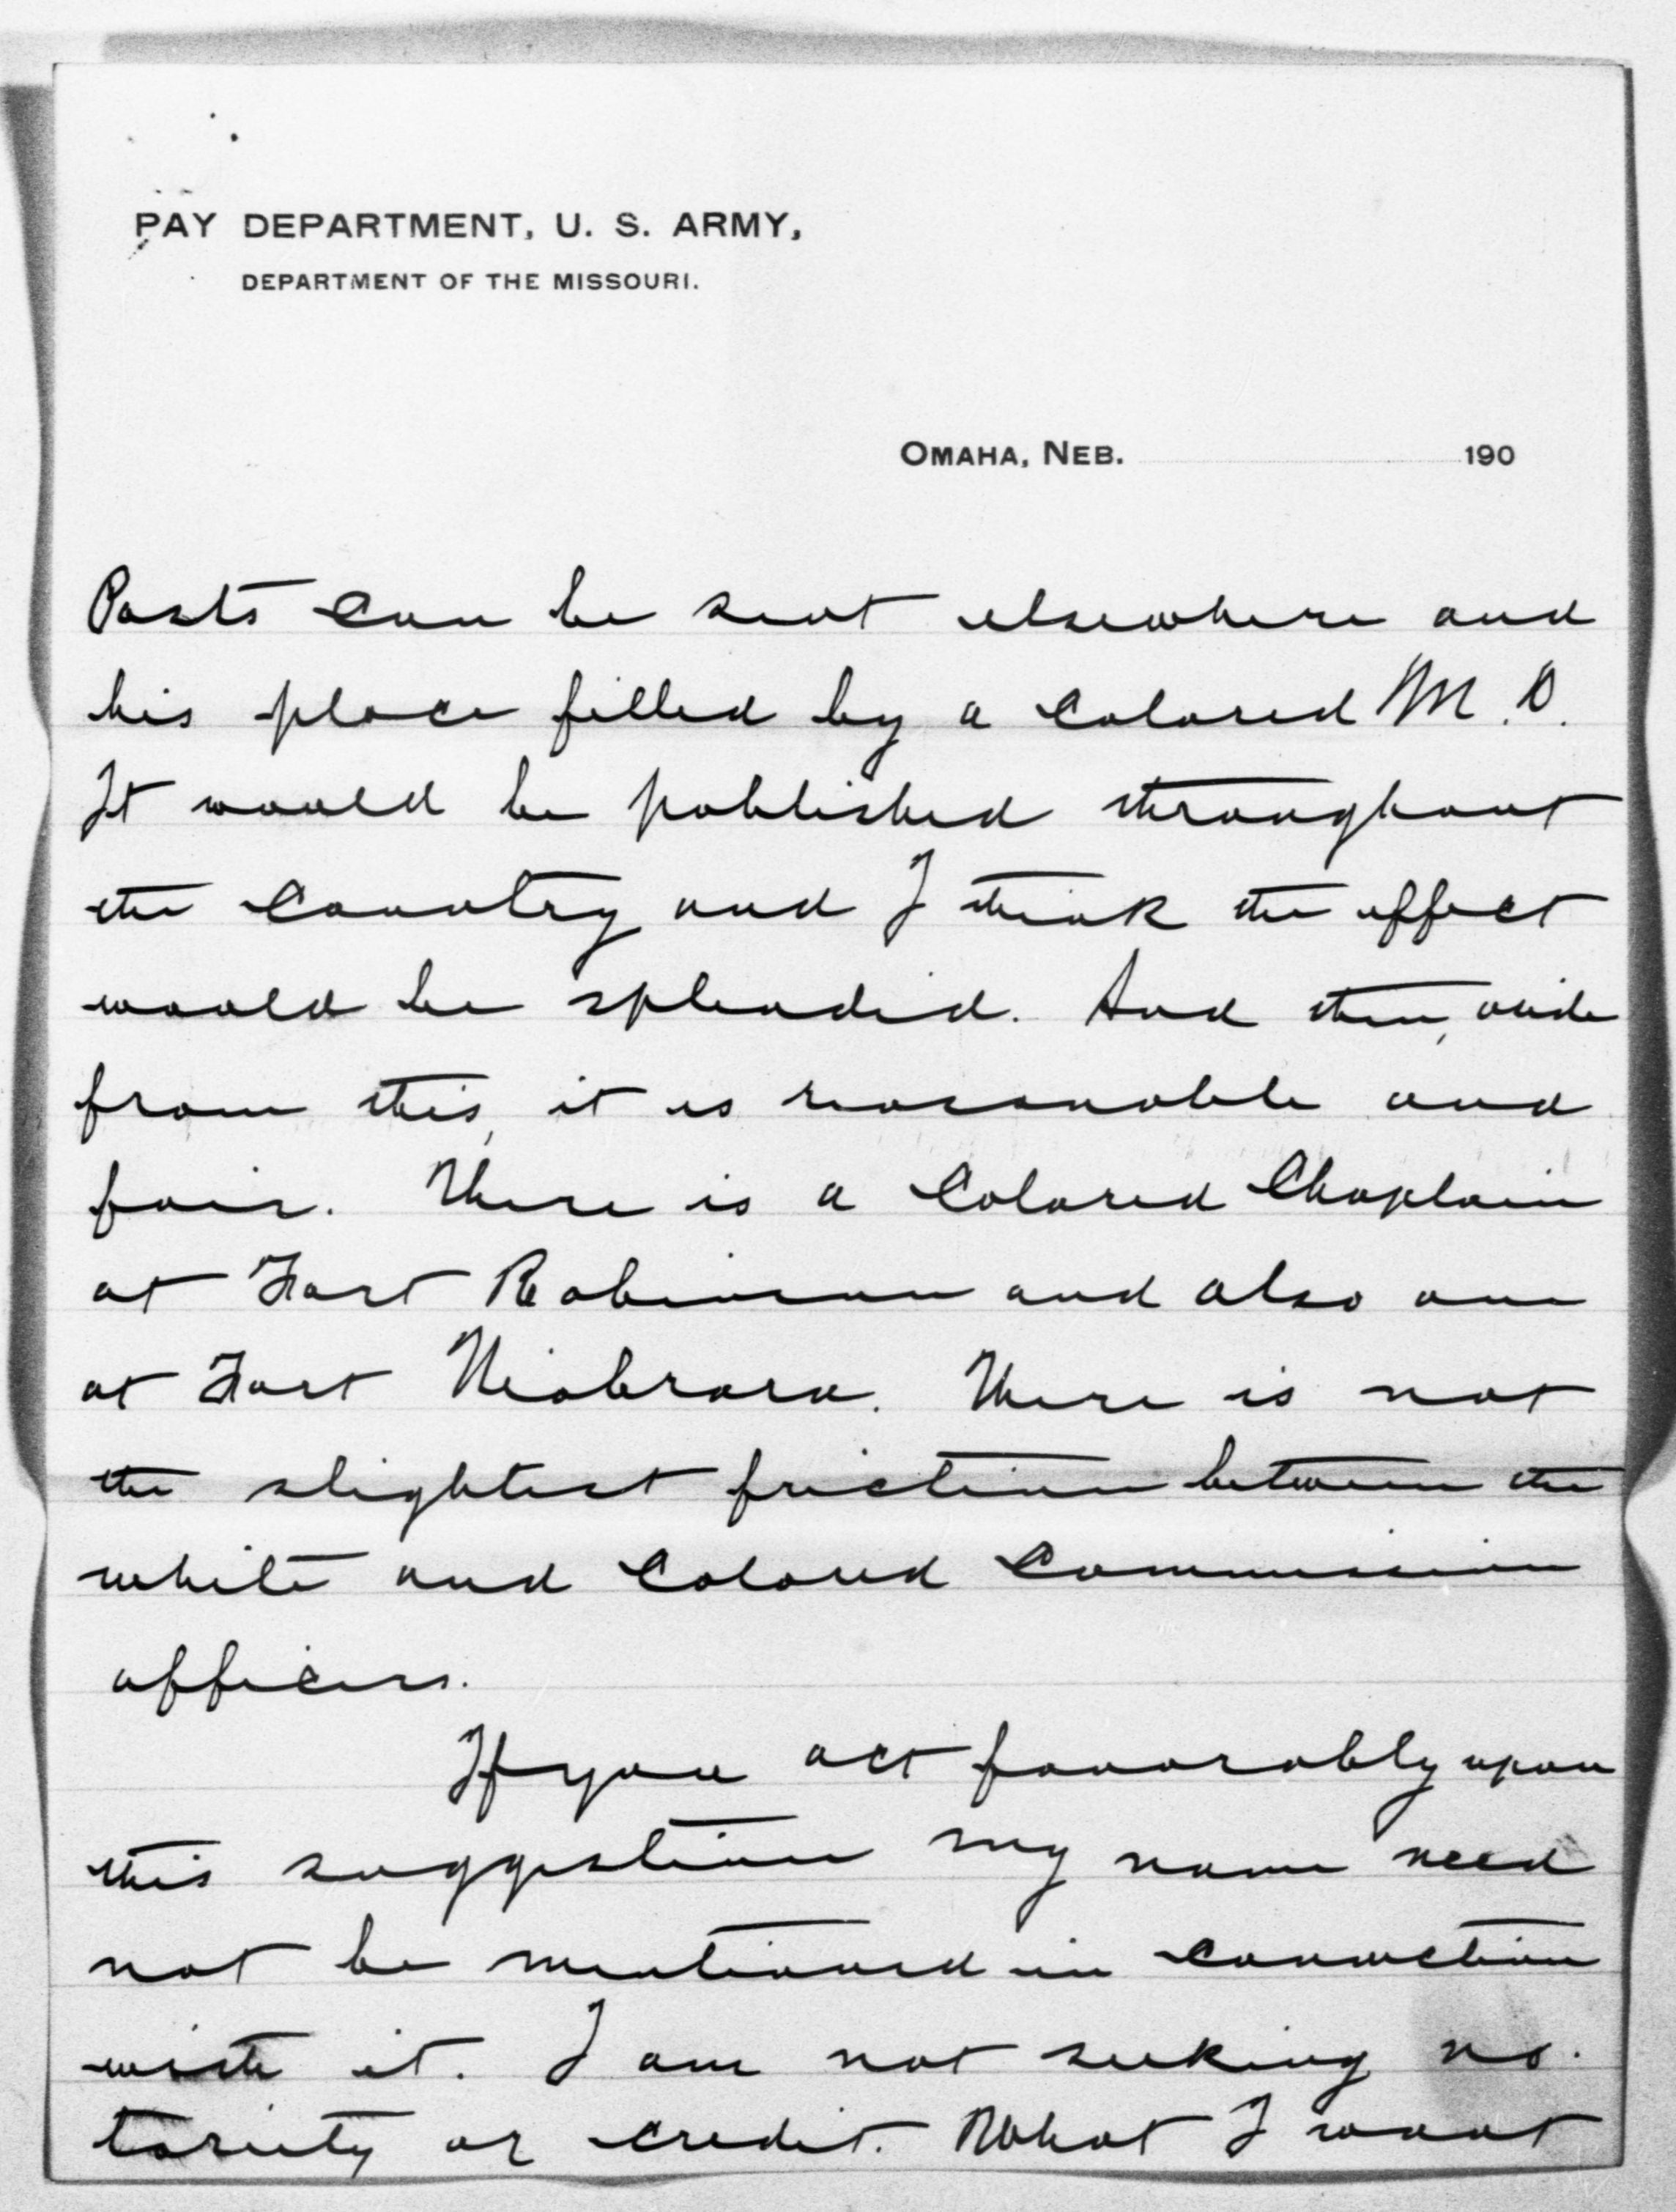 PAY DEPARTMENT, U. S. ARMY,
DEPARTMENT OF THE MISSOURI.
OMAHA, NEB. 190
Posts can be sent elsewhere and
his place filled by a colored M.D.
It would be published throughout
the country and I think the effect
would be splendid. And then, aside
from this, it is reasonable and
fair. There is a Colored Chaplain
at Fort Robinson and also one
at Fort Niobrara. There is not
the slightest friction between the
white and Colored Commission
officers.
If you act favorably upon
this suggestion my name need
not be mentioned in connection
with it. I am not seeking no-
toriety or credit. What I want